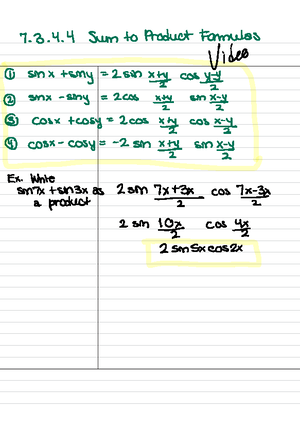 7.3.4.4 Sum to Product Formulas
Video
① sin x + sin y = 2 sin x+y/2 cos x-y/2
② sin x - sin y = 2 cos x+y/2 sin x-y/2
③ cos x + cos y = 2 cos x+y/2 cos x-y/2
④ cos x - cos y = -2 sin x+y/2 sin x-y/2
Ex. Write
sin 7x + sin 3x as
a product
2 sin 7x+3x/2 cos 7x-3x/2
2 sin 10x/2 cos 4x/2
2 sin 5x cos 2x